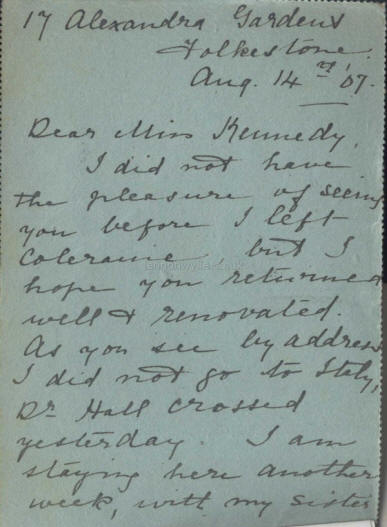 17 Alexandra Gardens
Folkestone.
Aug. 14th, 07.
Dear Miss Kennedy,
I did not have
the pleasure of seeing
you before I left
Coleraine, but I
hope you returned
well & renovated.
As you see by address
I did not go to Italy,
Dr Hall crossed
yesterday. I am
staying here another
week, with my sister